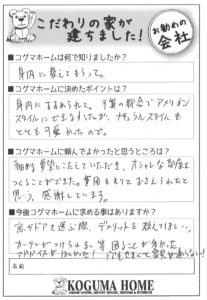 こだわりの家が
建ちました!
お勧めの
会社
■コグマホームは何で知りましたか?
身内に教えてもらって。
■コグマホームに決めたポイントは?
身内にすすめられて。予算の都合でアメリカン
スタイルにできなかったが、ナチュラルスタイルも
とても可愛かったので。
■コグマホームに頼んでよかったと思うところは?
細かい要望にこたえていただき、オシャレな部屋を
つくることができた。費用もわりとおさえられたと
思う。感謝しています。
■今後コグマホームに求める事はありますか?
窓やドアを選ぶ際、デメリットを教えてほしい。
カーテンがつけられない等、困ることがあった。
アドバイスがほしかった!
名前
KOGUMA HOME